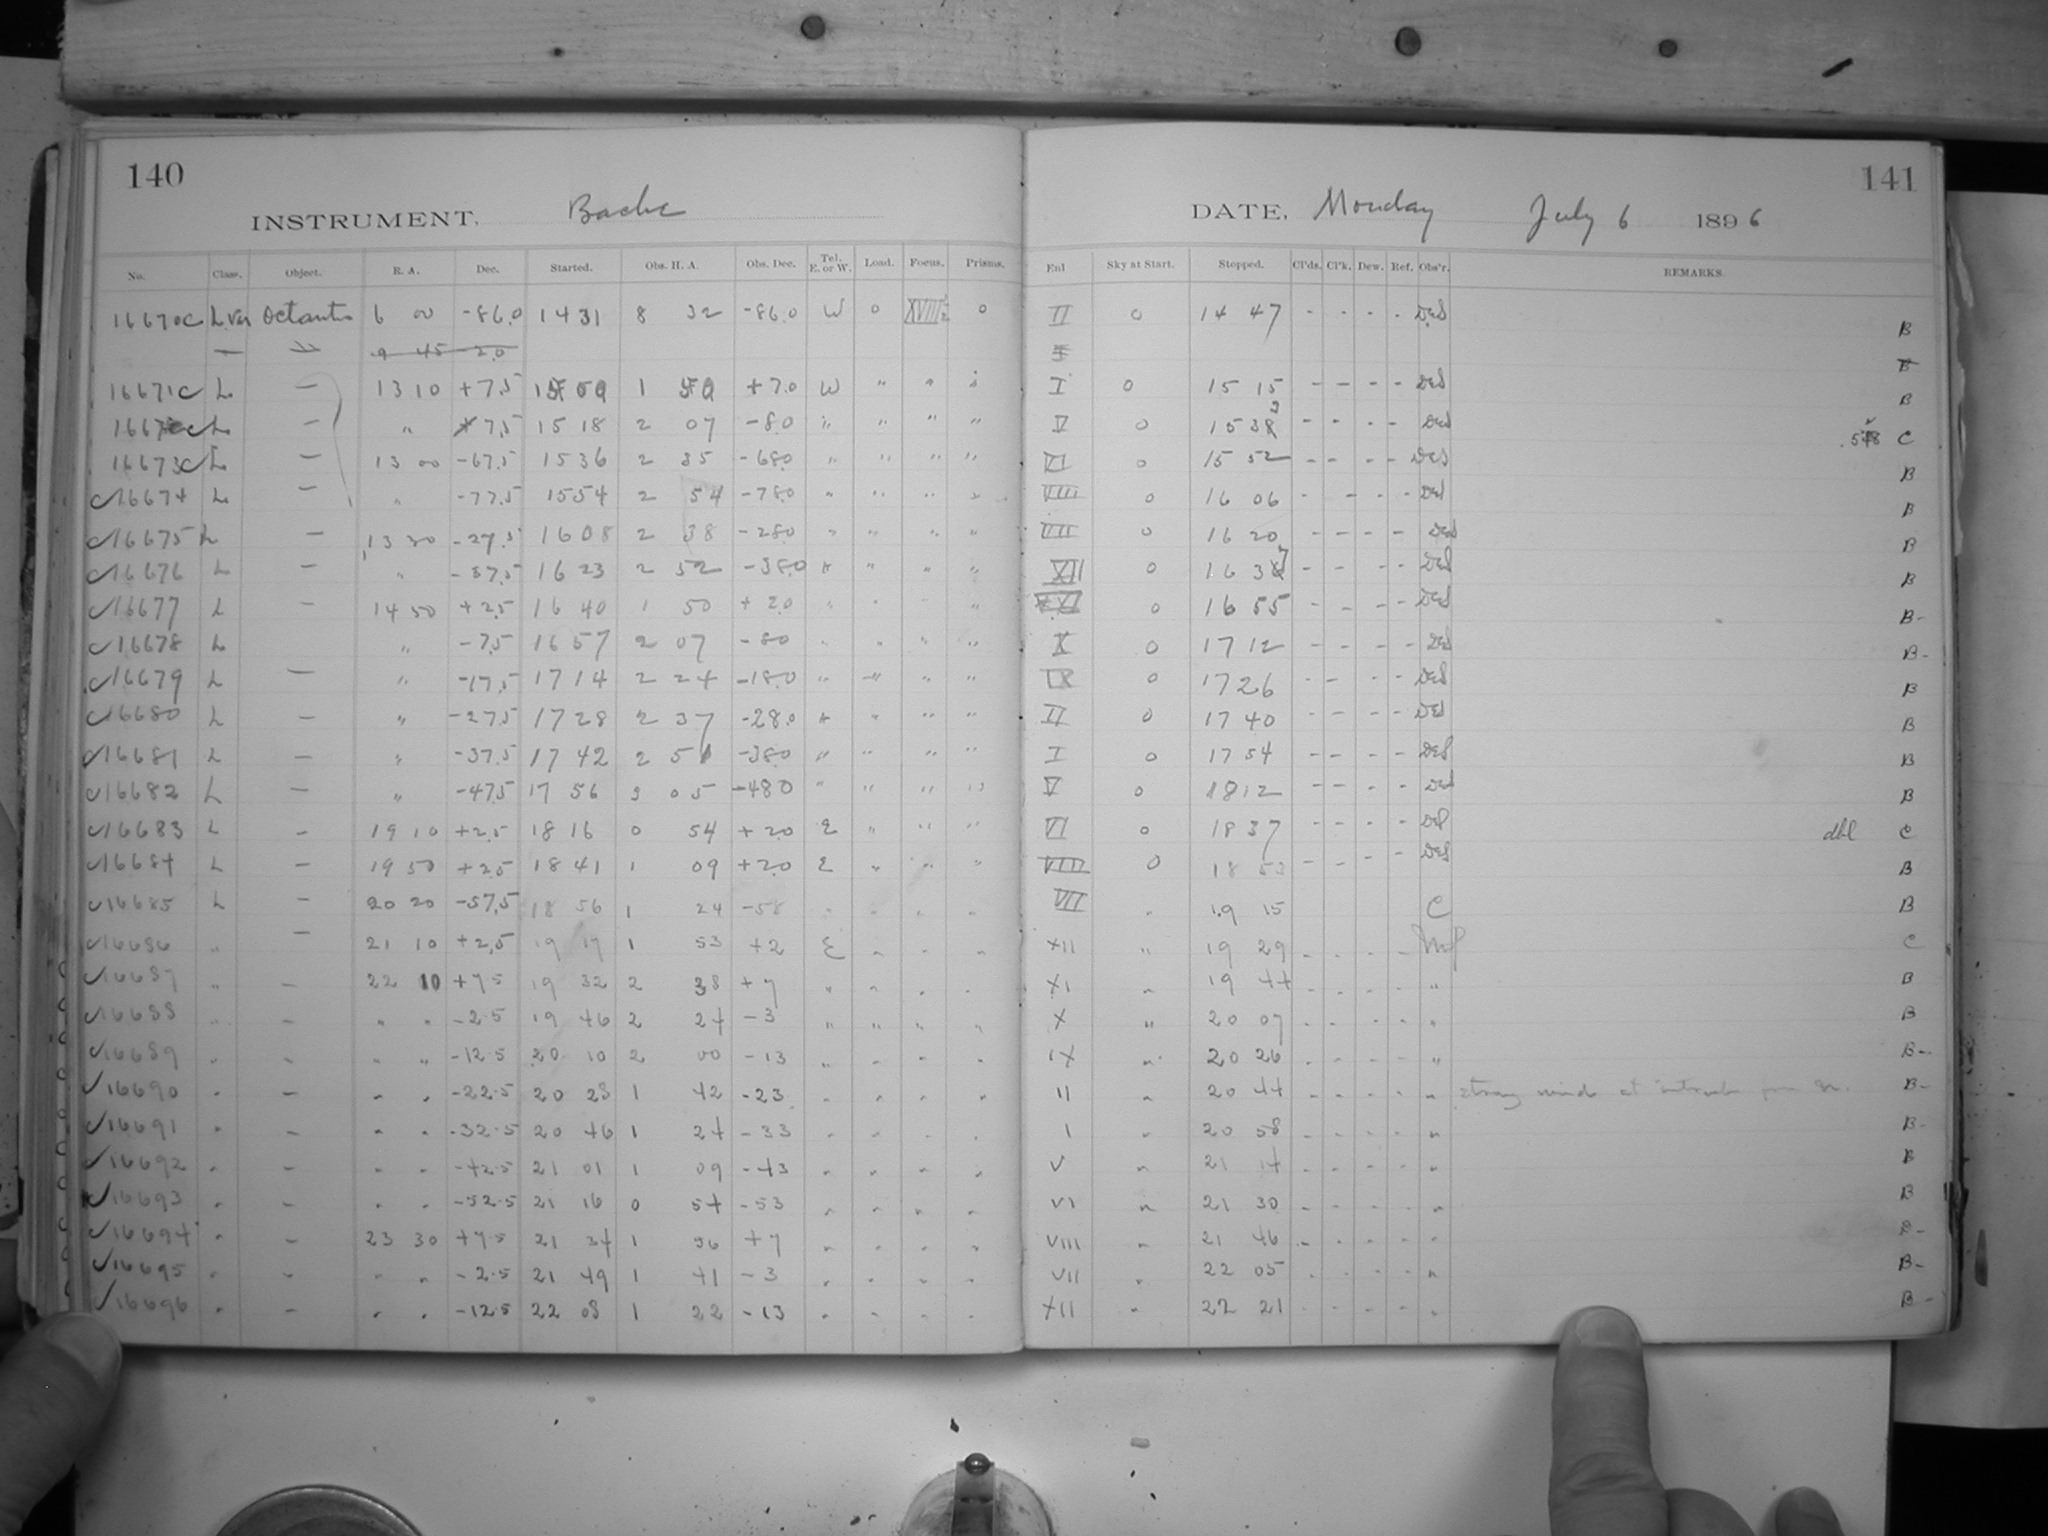 140
INSTRUMENT, Bache
No. Class. Object. R. A. Dec. Started. Obs. H. A. Obs. Dec. Tel. E. or W. Load. Focus. Prisms.
16670c L Var Octantis 6 00 -86.0 14 31 8 32 -86.0 W 0 XVIII½ 0
— " 9 45 -2.0
16671c L — 13 10 +7.5 15 09 1 59 +7.0 W " " "
L — " -7.5 15 18 2 07 -8.0 " " " "
16673c L — 13 00 -67.5 15 36 2 35 -68.0 " " " "
16674 L — " -77.5 15 54 2 54 -78.0 " " " "
16675 L — 13 30 -27.5 16 08 2 38 -28.0 " " " "
16676 L — " -37.5 16 23 2 52 -38.0 " " " "
16677 L — 14 50 +2.5 16 40 1 50 +2.0 " " " "
16678 L " -7.5 16 57 2 07 -8.0 " " " "
16679 L — " -17.5 17 14 2 24 -18.0 " " " "
16680 L — " -27.5 17 28 2 37 -28.0 " " " "
16681 L — " -37.5 17 42 2 51 -38.0 " " " "
16682 L — " -47.5 17 56 3 05 -48.0 " " " "
16683 L — 19 10 +2.5 18 16 0 54 +2.0 E " " "
16684 L — 19 50 +2.5 18 41 1 09 +2.0 E " " "
16685 L — 20 20 -57.5 18 56 1 24 -58 " " " "
16686 " — 21 10 +2.5 19 17 1 53 +2 E " " "
16687 " — 22 10 +7.5 19 32 2 38 +7 " " " "
16688 " — " " -2.5 19 46 2 24 -3 " " " "
16689 " — " " -12.5 20 10 2 00 -13 " " " "
16690 " — " " -22.5 20 28 1 42 -23 " " " "
16691 " — " " -32.5 20 46 1 24 -33 " " " "
16692 " — " " -42.5 21 01 1 09 -43 " " " "
16693 " — " " -52.5 21 16 0 54 -53 " " " "
16694 " — 23 30 +7.5 21 34 1 56 +7 " " " "
16695 " — " " -2.5 21 49 1 41 -3 " " " "
16696 " — " " -12.5 22 08 1 22 -13 " " " "
141
DATE, Monday July 6 1896
Enl Sky at Start. Stopped. Cl'ds. Cl'k. Dew. Ref. Obs'r. REMARKS.
II 0 14 47 - - - - DES B
I 0 15 15 - - - - DES B
V 0 15 33 - - - - DES C
VI 0 15 52 - - - - DES B
VIII 0 16 06 - - - - DES B
VII 0 16 20 - - - - DES B
XII 0 16 37 - - - - DES B
XI 0 16 55 - - - - DES B-
X 0 17 12 - - - - DES B-
IX 0 17 26 - - - - DES B
II 0 17 40 - - - - DES B
I 0 17 54 - - - - DES B
V 0 18 12 - - - - DES B
VI 0 18 37 - - - - DES dbl C
VIII 0 18 53 - - - - DES B
VII " 19 15 C B
XII " 19 29 - - - - C
XI " 19 44 - - - - " B
X " 20 07 - - - - " B
IX " 20 26 - - - - " B-
II " 20 44 - - - - " strong wind at B-
I " 20 58 - - - - " B-
V " 21 14 - - - - " B
VI " 21 30 - - - - " B
VIII " 21 46 - - - - " B-
VII " 22 05 - - - - " B-
XII " 22 21 - - - - " B-